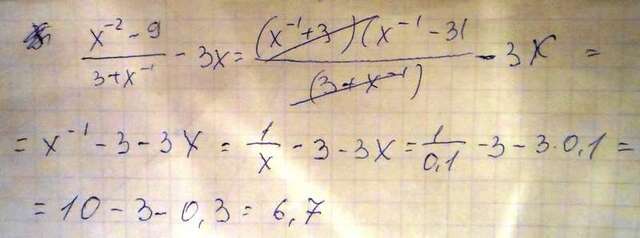 x⁻² - 9 / 3 + x⁻¹ - 3x = (x⁻¹ + 3)(x⁻¹ - 3) / (3 + x⁻¹) - 3x =
= x⁻¹ - 3 - 3x = 1/x - 3 - 3x = 1/0,1 - 3 - 3·0,1 =
= 10 - 3 - 0,3 = 6,7